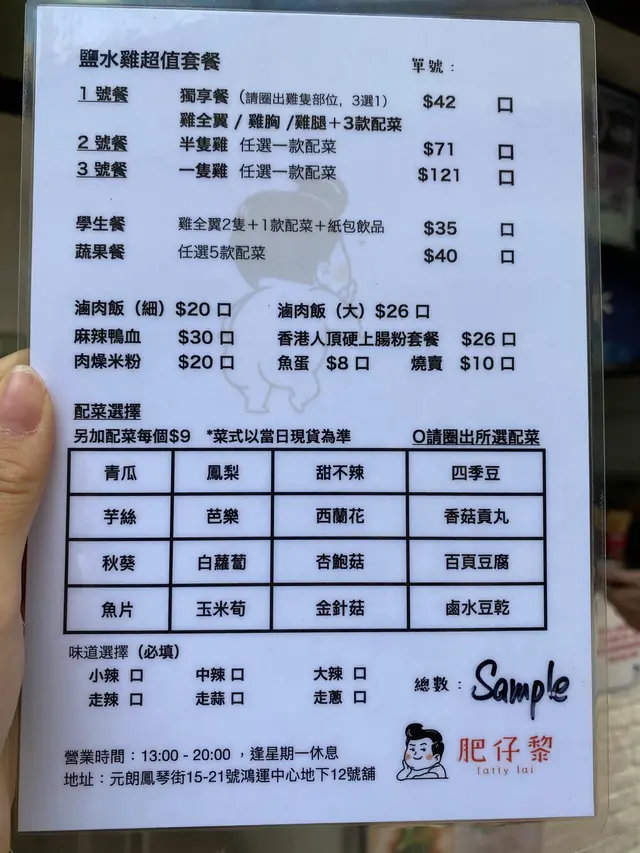 鹽水雞超值套餐 單號：
1 號餐 獨享餐（請圈出雞隻部位，3選1） $42 口
雞全翼 / 雞胸 /雞腿＋3款配菜
2 號餐 半隻雞 任選一款配菜 $71 口
3 號餐 一隻雞 任選一款配菜 $121 口
學生餐 雞全翼2隻＋1款配菜＋紙包飲品 $35 口
蔬果餐 任選5款配菜 $40 口
滷肉飯（細）$20 口 滷肉飯（大）$26 口
麻辣鴨血 $30 口 香港人頂硬上腸粉套餐 $26 口
肉燥米粉 $20 口 魚蛋 $8 口 燒賣 $10 口
配菜選擇
另加配菜每個$9 *菜式以當日現貨為準 O請圈出所選配菜
青瓜 鳳梨 甜不辣 四季豆
芋絲 芭樂 西蘭花 香菇貢丸
秋葵 白蘿蔔 杏鮑菇 百頁豆腐
魚片 玉米荀 金針菇 鹵水豆乾
味道選擇（必填）
小辣 口 中辣 口 大辣 口
走辣 口 走蒜 口 走蔥 口
總數： Sample
營業時間：13:00 - 20:00 ，逢星期一休息
地址：元朗鳳琴街15-21號鴻運中心地下12號舖
肥仔黎
fatty lai